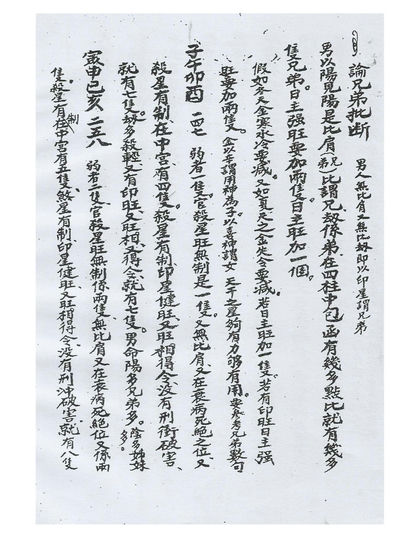 論兄弟批断 男人無比肩又無比劫即以印星謂兄弟
男以陽見陽是比肩(兄弟)比謂兄劫係弟在四柱中包函有幾多點比就有幾多
隻兄弟日主強旺要加兩隻日主旺加一個。
假如冬天金寒水冷要減。又如夏天之金失令要減。若日主旺加一隻。若有印旺日主强
旺要加兩隻。金以辛謂用神為子以喜神謂女 天干之星夠有力够有用。要参考兄弟數句
子午卯酉 一四七 弱者一隻。官殺星旺無制是一隻。又無比肩又在衰病死絕之位又
殺星有制在中宮有四隻。殺星有制印星健旺又旺相得令没有刑衝破害、
就有七隻。劫多殺輕又有印旺又旺相又得令就有七隻。男命陽多兄弟多。陰多姊妹多。
寅申巳亥 二五八 弱者二隻官殺星旺無制係兩隻無比肩又在衰病死絕位又係兩
隻。殺星有制在中宮有五隻煞星有制印星健旺又旺相得令没有刑沖破害就有八隻